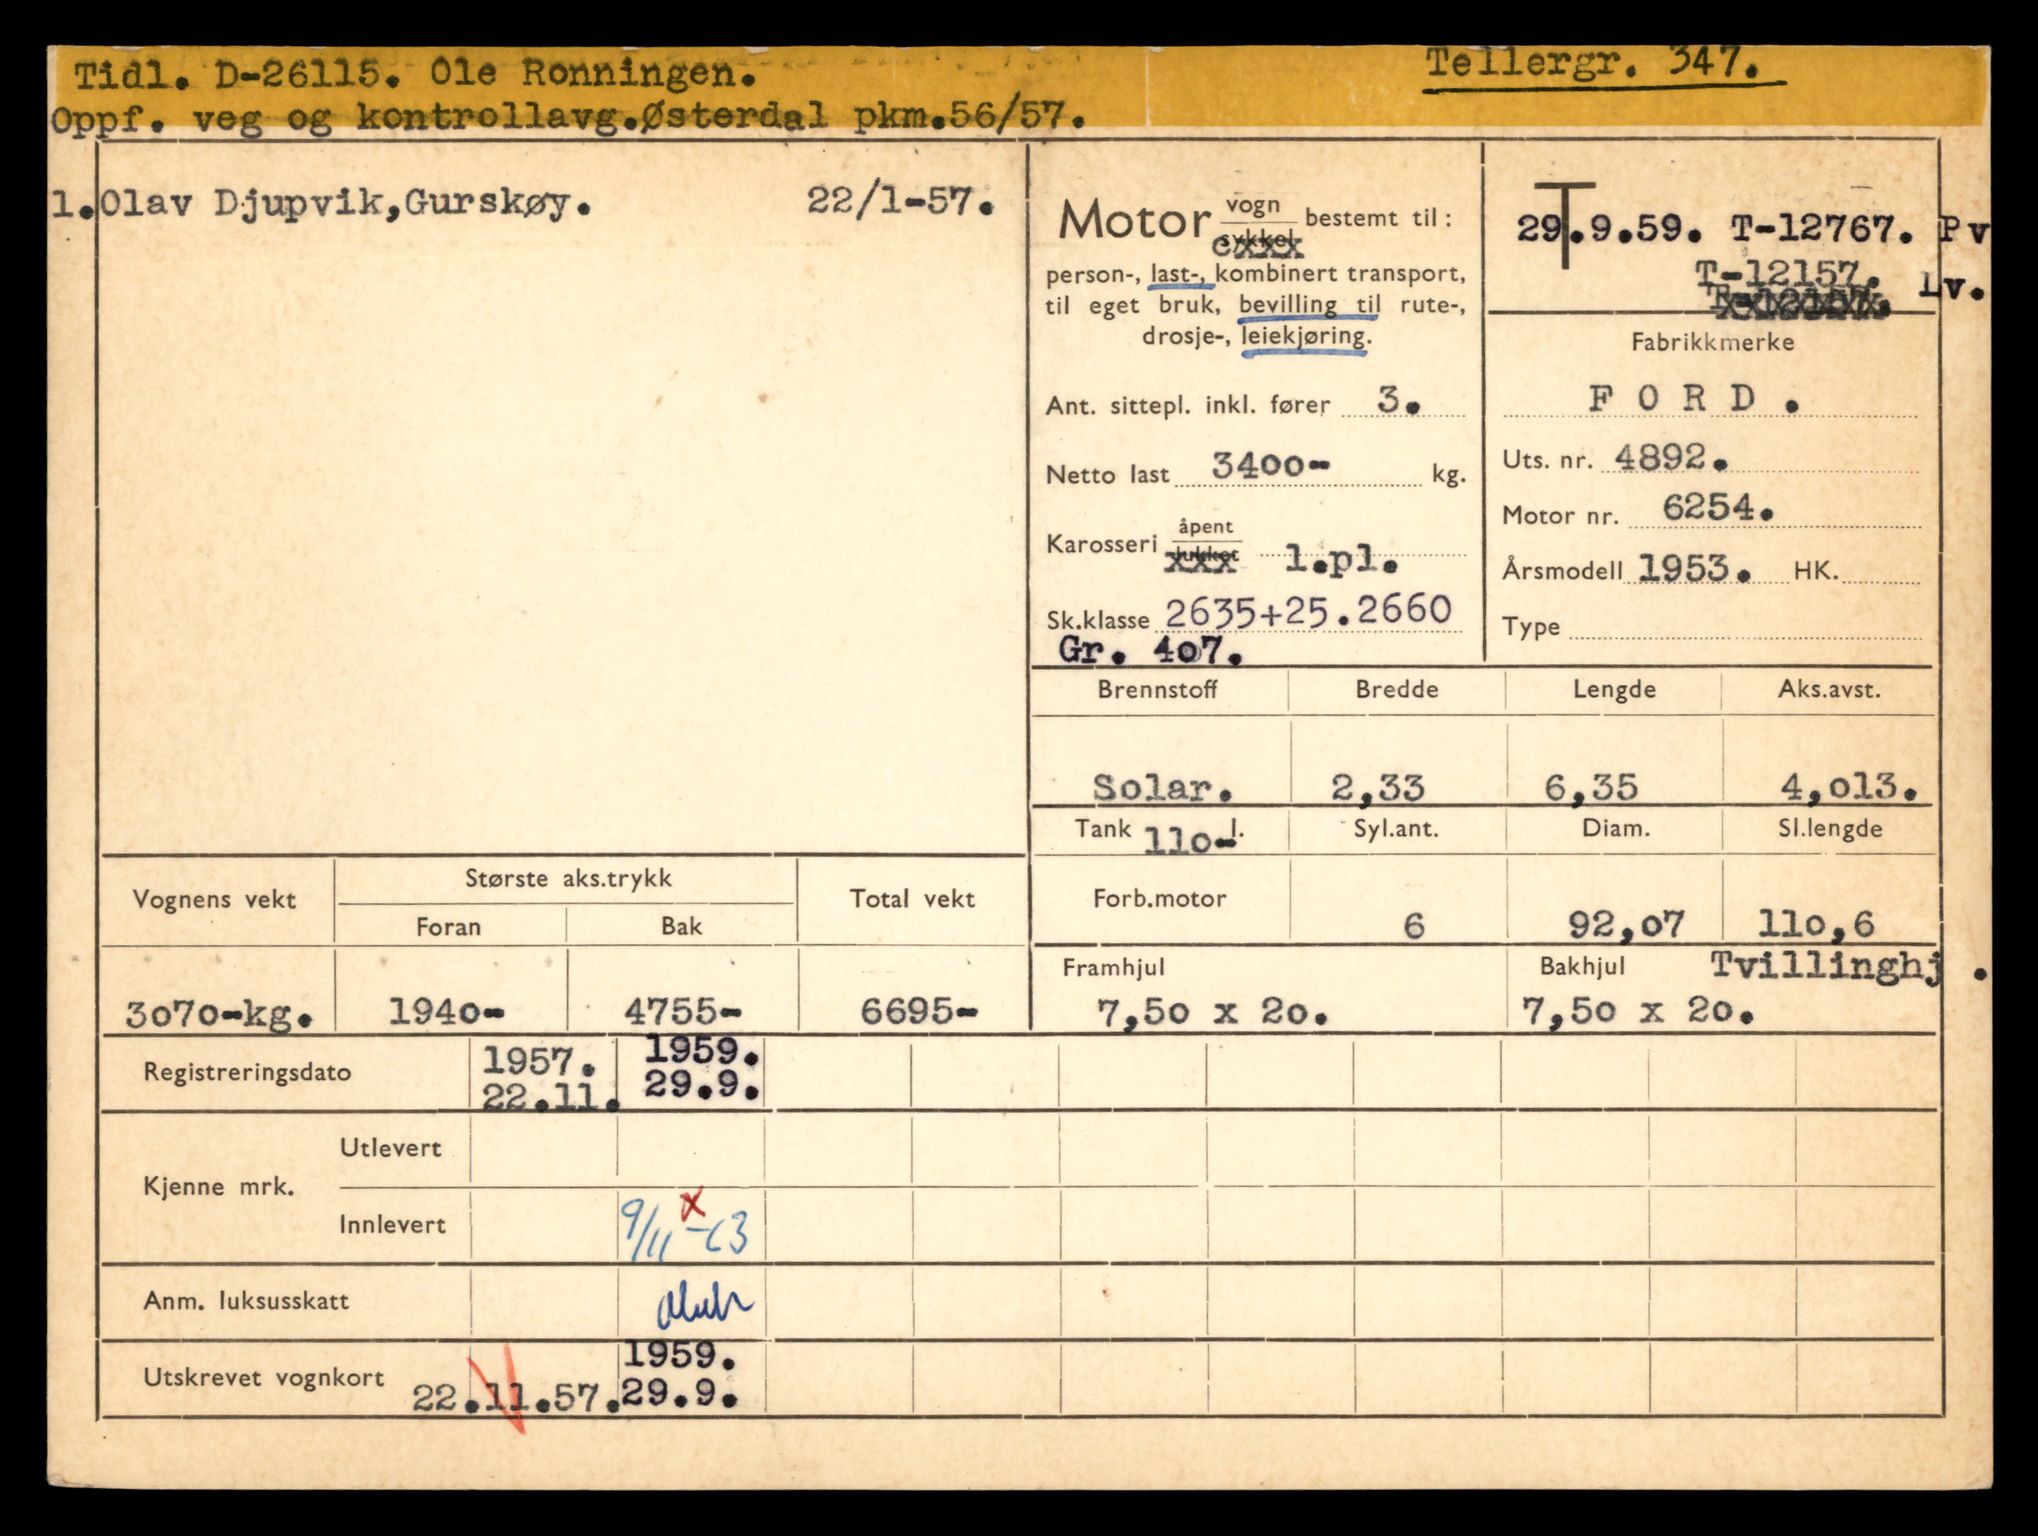 Tidl. D-26115. Ole Ronningen.
Tellergr. 347.
Oppf. veg og kontrollavg.Østerdal pkm.56/57.
1. Olav Djupvik,Gurskøy. 22/1-57.
Motor vogn sykkel bestemt til:
person-, last-, kombinert transport,
til eget bruk, bevilling til rute-,
drosje-, leiekjøring.
Ant. sittepl. inkl. fører 3.
Netto last 3400- kg.
Karosseri åpent lukket 1.pl.
Sk.klasse 2635+25.2660
Gr. 407.
T
29.9.59. T-12767. Pv
T-12157. Lv.
Fabrikkmerke
FORD.
Uts. nr. 4892.
Motor nr. 6254.
Årsmodell 1953. HK.
Type
Brennstoff Bredde Lengde Aks.avst.
Solar. 2,33 6,35 4,013.
Tank 110- l. Syl.ant. Diam. Sl.lengde
Forb.motor 6 92,07 110,6
Framhjul Bakhjul Tvillinghj.
7,50 x 20. 7,50 x 20.
Vognens vekt Største aks.trykk Total vekt
Foran Bak
3070-kg. 1940- 4755- 6695-
Registreringsdato 1957. 1959.
22.11. 29.9.
Kjenne mrk. Utlevert
Innlevert 9/11 x -63
Anm. luksusskatt
Utskrevet vognkort 1959.
22.11.57. 29.9.